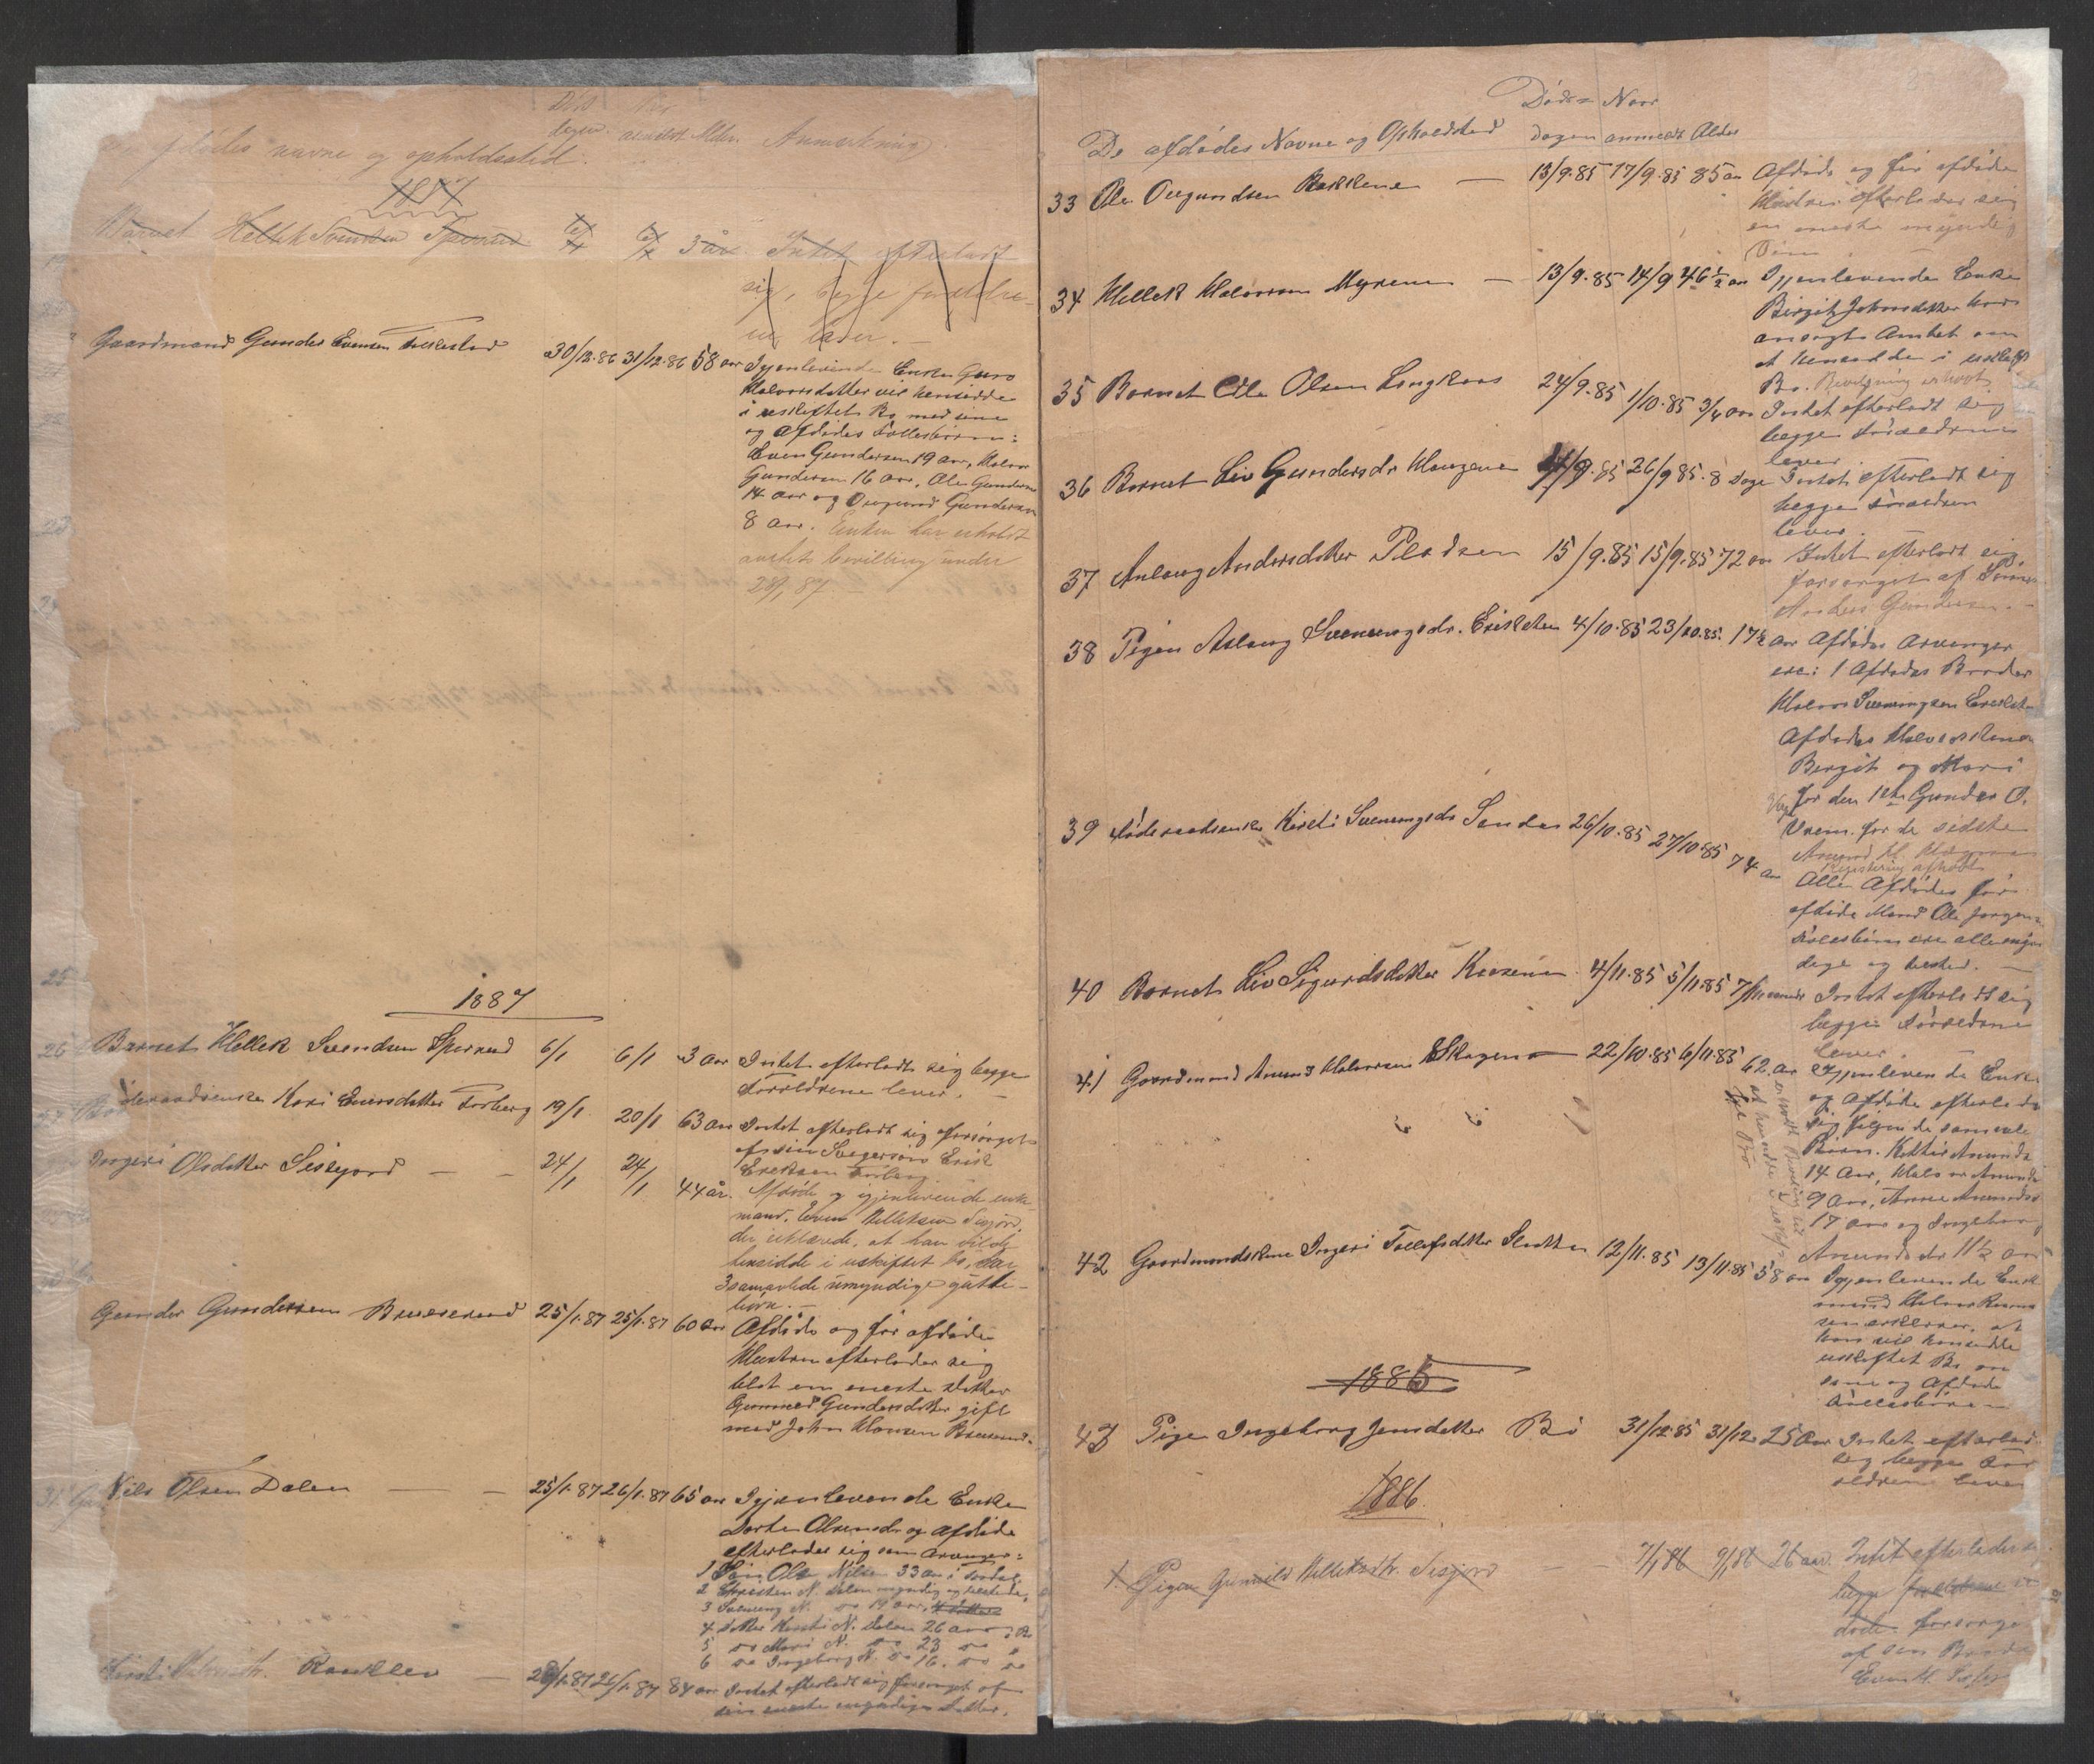 Døds Naar
afdødes navne og opholdssted. dagen. anmeldt Alder. Anmærkning.
1887
Barnet Hellek Svendsen Spernud 6/1 6/1 3 år. Intet efterladt
sig, begge forældre-
ne lever. —
Gaardmand Gunder Evensen Folkestad 30/12.86 31/12.86 58 aar Igjenlevende Enke Guro
Halvorsdatter vil hensidde
i uskiftet Bo med sine
og Afdødes Fællesbørn:
Even Gundersen 19 aar, Halvor
Gundersen 16 aar, Ole Gundersen
14 aar og Øugund Gundersen
8 aar. Enken har erholdt
amtets bevilling under
29/1 87
1887
Barnet Hellek Svendsen Spernud 6/1 6/1 3 aar Intet efterladt sig begge
Forældrene lever. —
Føderaadsenke Kari Eversdatter Forberg 19/1 20/1 63 aar Intet efterladt sig forsørget
af sin Svigersøn Erik
Eriksen Forberg
Ingeri Olsdatter Sisgjord — — 24/1 24/1 44 år. Afdøde og igjenlevende enke-
mand, Even Helleksen Sisjord,
der erklærede, at han vilde
hensidde i uskiftet bo, har
3 samavlede umyndige gutte-
børn. —
Gunder Gundersen Bruserud 25/1.87 25/1.87 60 aar Afdøde og før afdøde
Hustru efterlader sig
blot en eneste Datter
Gunnild Gundersdatter gift
med John Hansen Bruserud.
Nils Olsen Dalen — — 25/1.87 26/1.87 65 aar Igjenlevende Enke
Dorte Olsensdr og Afdøde
efterlader sig som Arvinger:
1 Søn Ole Nilsen 33 aar i
2 Christen N. Dalen myndig og
3 Svenung N. do 19 aar, 4 Datter
4 Datter Kirsti N. Dalen 26 aar
5 do Mari N. do 23 do
6 do Ingeborg N. do 16. do do
Kirsti Halvorsdtr. Roukleiv — 26/1.87 26/1.87 84 aar Intet efterladt sig forsørget af
sin eneste myndige Datter.
Døds= Naar
De afdødes Navne og Opholdsted dagen anmeldt Alder
33 Ole Øugundsen Bakkene — 13/9.85 17/9.85 85 aar Afdøde og før afdøde
Hustru efterlader sig
en eneste myndig
Søn.
34 Hellek Halvorsen Myrene — 13/9.85 14/9 46 1/2 aar Igjenlevende Enke
Birgit Johnsdatter har
ansøgt Amtet om
at hensidde i uskiftet
Bo. Bevilgning erholdt
35 Barnet Ole Olsen Langkaas 24/9.85 1/10.85 3/4 aar Intet efterladt sig
begge Forældrene
lever.
36 Barnet Liv Gundersdr Haugene /9.85 26/9 85. 8 Dage Intet efterladt sig
begge Forældrene
lever.
37 Anlaug Andersdatter Pladsen 15/9.85 15/9.85 72 aar Intet efterladt sig
forsørget af Sønnen
Anders Gundersen. —
38 Pigen Aslaug Svenungsdr. Eriksten 4/10.85 23/10.85. 17 1/2 aar Afdødes Arvinger
ere: 1 Afdødes Broder
Halvor Svenungsen Erikst
Afdødes Halvsøskende
Bergit og Mari
for den 1ste Gunder O.
Vreim. for de sidste
Amund H.
Registrering afholdt
39 Føderaadsenke Kirsti Svenungsdr Sanden 26/10.85 27/10.85 74 aar Alle Afdødes før
afdøde Mand Ole Jørgens
Fællesbørn ere alle myn
dige og tilsted. —
40 Barnet Liv Sigurdsdatter Kaasene 4/11.85 5/11.85 7/ maaneder Intet efterladt sig
begge Forældrene
lever.
41 Gaardmand Amund Halvorsen Skogen 22/10.85 6/11.85 62. aar Igjenlevende Enke
og Afdøde efterlader
sig følgende samavle
Børn. Kittil Amunds
14 aar, Halvor Amunds
9 aar, Anne Amundsd
17 aar og Ingeborg
Amundsdr 11 1/2 aar
erholdt Bevilling til
at hensidde i uskif-
tet Bo
42 Gaardmandskone Ingeri Tollefsdatter Slette 12/11.85 13/11.85 58 aar Igjenlevende Enke
mand Halvor Rasmus
sen erklærer, at
han vil hensidde
uskiftet Bo
sine og Afdøde
Fællesbørn
1886
43 Pige Ingeborg Jensdatter Bø 31/12.85 31/12 25 aar Intet efterlad
sig begge For
ældrene lever
1886.
1. Pigen Gunnild Helleksdtr. Sisjord — 7/1 86 9/1 86 26 aar. Intet efterlader sig
begge forældrene er
døde forsørge
af sin Broder
Even H. Sisjor